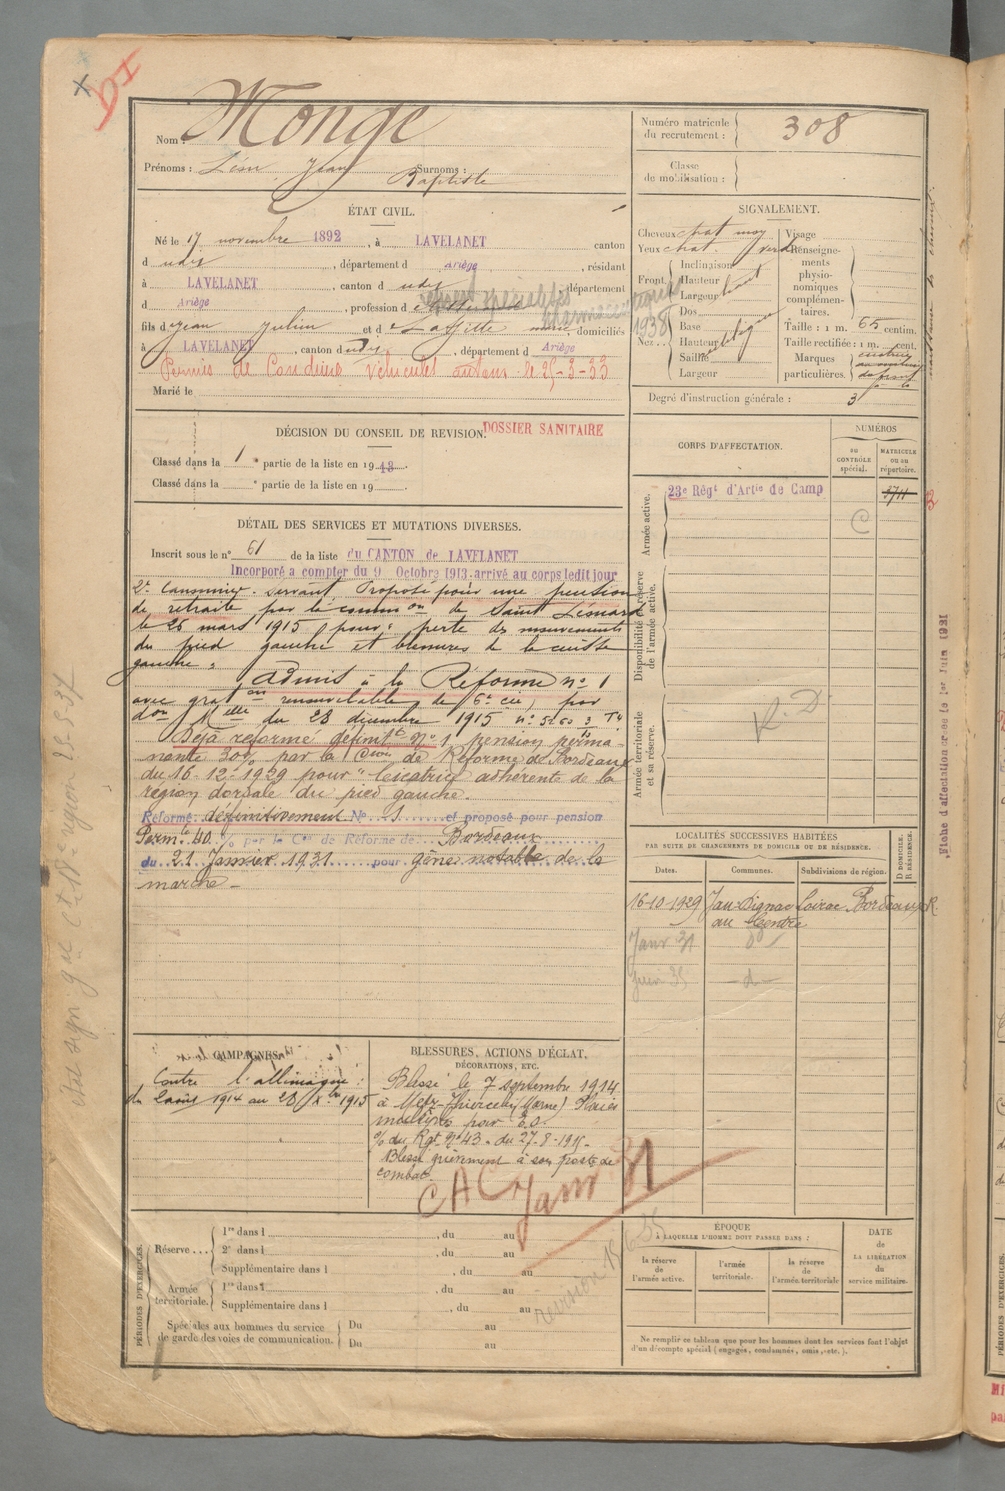 DI
Nom : Monge
Prénoms : Léon Jean Surnoms :
Baptiste
Numéro matricule
du recrutement : 308
Classe
de mobilisation :
ÉTAT CIVIL.
Né le 17 novembre 1892, à LAVELANET canton
d udit, département d Ariège, résidant
à LAVELANET, canton d udit département
d Ariège, profession d
spécialités pharmaceutiques
1938
fils de Jean Julien et de Laffitte Marie domiciliés
à LAVELANET, canton dudit, département d Ariège
Permis de Conduire véhicules autom le 25-3-33
Marié le
SIGNALEMENT.
Cheveux chat moy
Yeux chat. verd
Front Inclinaison
Hauteur
Largeur haut
Nez Dos
Base
Hauteur
Saillie
Largeur
Visage
Renseigne-
ments
physio-
nomiques
complémen-
taires.
Taille : 1 m. 65 centim.
Taille rectifiée : 1 m. cent.
Marques
particulières.
Degré d'instruction générale : 3
DÉCISION DU CONSEIL DE REVISION.
DOSSIER SANITAIRE
Classé dans la 1e partie de la liste en 1913.
Classé dans la e partie de la liste en 19
DÉTAIL DES SERVICES ET MUTATIONS DIVERSES.
Inscrit sous le n° 61 de la liste du CANTON de LAVELANET
Incorporé a compter du 9 Octobre 1913 arrivé au corps ledit jour
2e Canonnier servant. Proposé pour une pension
de retraite par la common de Saint Léonard
le 26 mars 1915 pour "perte des mouvements
du pied gauche et blessures de la cuisse
gauche".
Admis à la Réforme n° 1
avec graton renouvelable de 6e cie, par
don Melle du 28 décembre 1915
Déjà réformé définitt n° 1 pension perma-
nente 30% par la Con de Réforme de Bordeaux
du 16-12-1929 pour "cicatrice adhérente de la
région dorsale du pied gauche.
Réformé définitivement N° 1 et proposé pour pension
Perm.te 40 % par la Con de Réforme de Bordeaux
du 21 Janvier 1931 pour gêne notable de la
marche -
CORPS D'AFFECTATION.
NUMÉROS
au
CONTRÔLE
spécial.
MATRICULE
ou au
répertoire.
Armée active.
23e Régt d'Artie de Camp
3711
Disponibilité et réserve
de l'armée active.
Armée territoriale
et sa réserve.
R.D
LOCALITÉS SUCCESSIVES HABITÉES
PAR SUITE DE CHANGEMENTS DE DOMICILE OU DE RÉSIDENCE.
Dates. Communes. Subdivisions de région.
D DOMICILE
R RÉSIDENCE.
16-10-1929 Jau-Dignac Loirac Bordeaux R.
au Centre
Janv 31 do
35 d
CAMPAGNES.
Contre l'allemagne :
du 2 août 1914 au 28 Xbre 1915
BLESSURES, ACTIONS D'ÉCLAT,
DÉCORATIONS, ETC.
Blessé le 7 septembre 1914
à Metz-Thiercelin (Marne) Plaies
multiples par E.O.
O/ du Rgt n° 43 - du 27-8-1915 -
Blessé grièvement à son poste de
combat.
CAC Janv 31
PÉRIODES D'EXERCICES.
Réserve
1re dans l , du au
2e dans l , du au
Supplémentaire dans l , du au
Armée
territoriale.
1re dans l , du au
Supplémentaire dans l , du au
Spéciales aux hommes du service
de garde des voies de communication.
Du au
Du au
ÉPOQUE
À LAQUELLE L'HOMME DOIT PASSER DANS :
la réserve
de
l'armée active.
l'armée
territoriale.
la réserve
de
l'armée territoriale
DATE
de
LA LIBÉRATION
du
service militaire.
Ne remplir ce tableau que pour les hommes dont les services font l'objet
d'un décompte spécial (engagés, condamnés, omis, etc.).
Fiche d'affectation créée le 1er Juin 1931